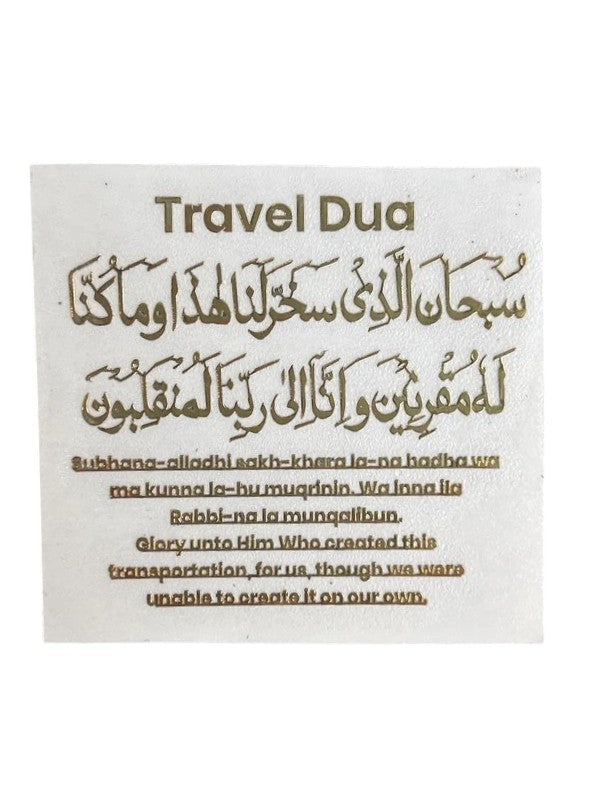 Travel Dua
سُبحَان الَّذِیْ سَخَّرَ لَنَا هٰذَا وَمَا كُنَّا
لَهُ مُقْرِنِيْن وَاِنَّآ اِلٰی رَبِّنَا لَمُنْقَلِبُوْن
Subhana-alladhi sakh-khara la-na hadha wa
ma kunna la-hu muqrinin. Wa Inna ila
Rabbi-na la munqalibun.
Glory unto Him Who created this
transportation, for us, though we were
unable to create it on our own.